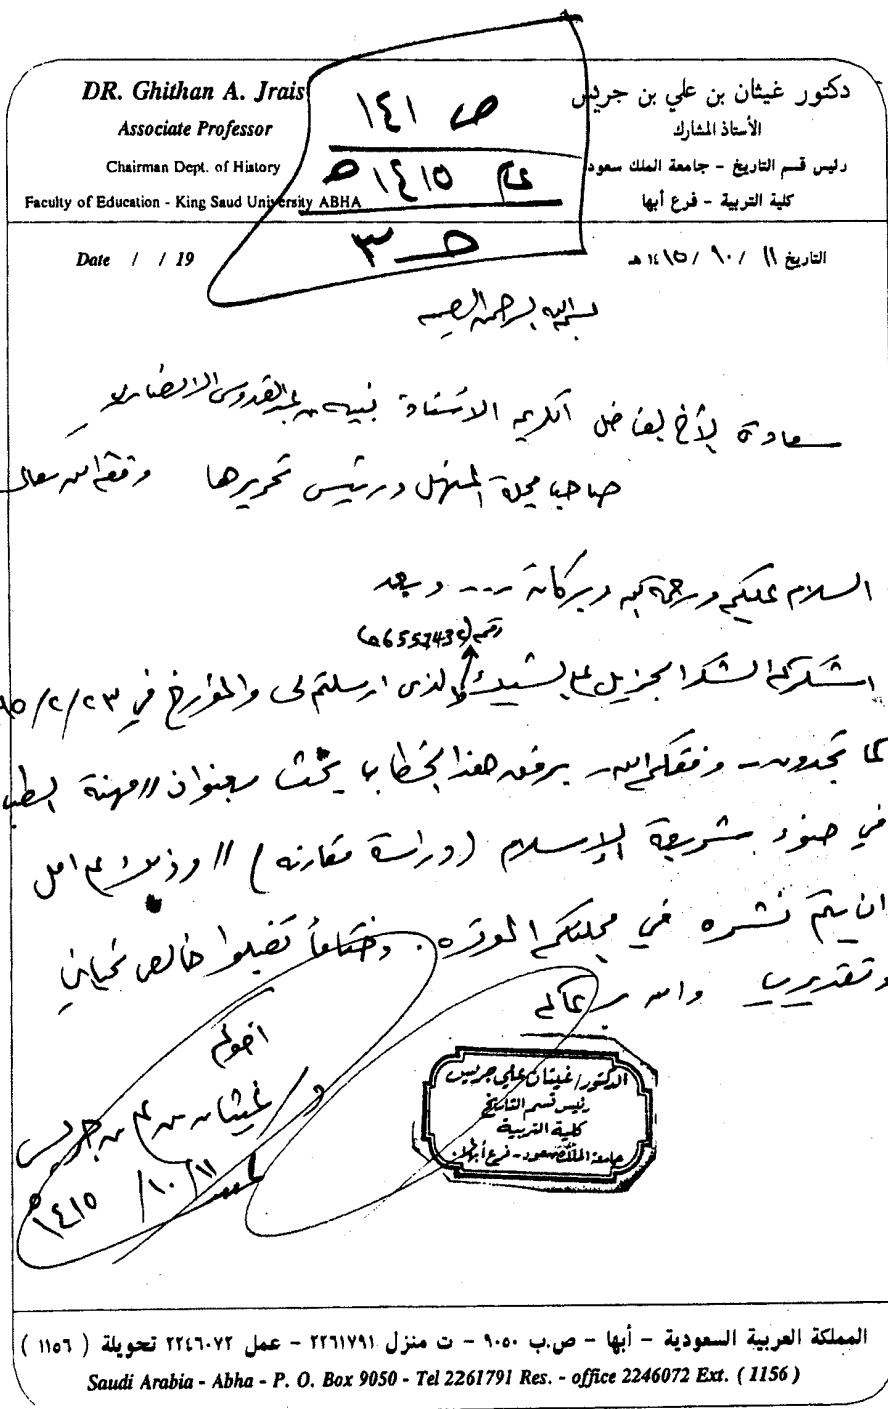 DR. Ghithan A. Jrais
Associate Professor
Chairman Dept. of History
Faculty of Education - King Saud University ABHA
دكتور غيثان بن علي بن جريس
الأستاذ المشارك
رئيس قسم التاريخ - جامعة الملك سعود
كلية التربية - فرع أبها
ص ١٤١
عام ١٤١٥ هـ
حـ ٣
Date / / 19
التاريخ ١١ / ١٠ / ١٤١٥ هـ
بسم الله الرحمن الرحيم
سعادة الأخ الفاضل الكريم الأستاذ نبيه بن عبدالقدوس الأنصاري
صاحب مجلة المنهل ورئيس تحريرها وفقه الله تعالى
السلام عليكم ورحمة الله وبركاته ... وبعد
رقم
اشكركم الشكر الجزيل على الشيك الذي ارسلتم لي والمؤرخ في ٢٣/٢/٩٥
كما تجدون - وفقكم الله - برفق هذا الخطاب بحث بعنوان // مهنة الطب
في ضوء شريعة الإسلام (دراسة مقارنه) // وذلك على امل
ان يتم نشره في مجلتكم الموقره . وختاماً تقبلوا خالص تحياتي
وتقديري والله يرعاكم
اخوكم
د/ غيثان بن علي بن جريس
١١/١٠/١٤١٥هـ
الدكتور/غيثان علي جريس
رئيس قسم التاريخ
كلية التربية
جامعة الملك سعود - فرع أبها
المملكة العربية السعودية - أبها - ص.ب ٩٠٥٠ - ت منزل ٢٢٦١٧٩١ - عمل ٢٢٤٦٠٧٢ تحويلة ( ١١٥٦ )
Saudi Arabia - Abha - P. O. Box 9050 - Tel 2261791 Res. - office 2246072 Ext. ( 1156 )